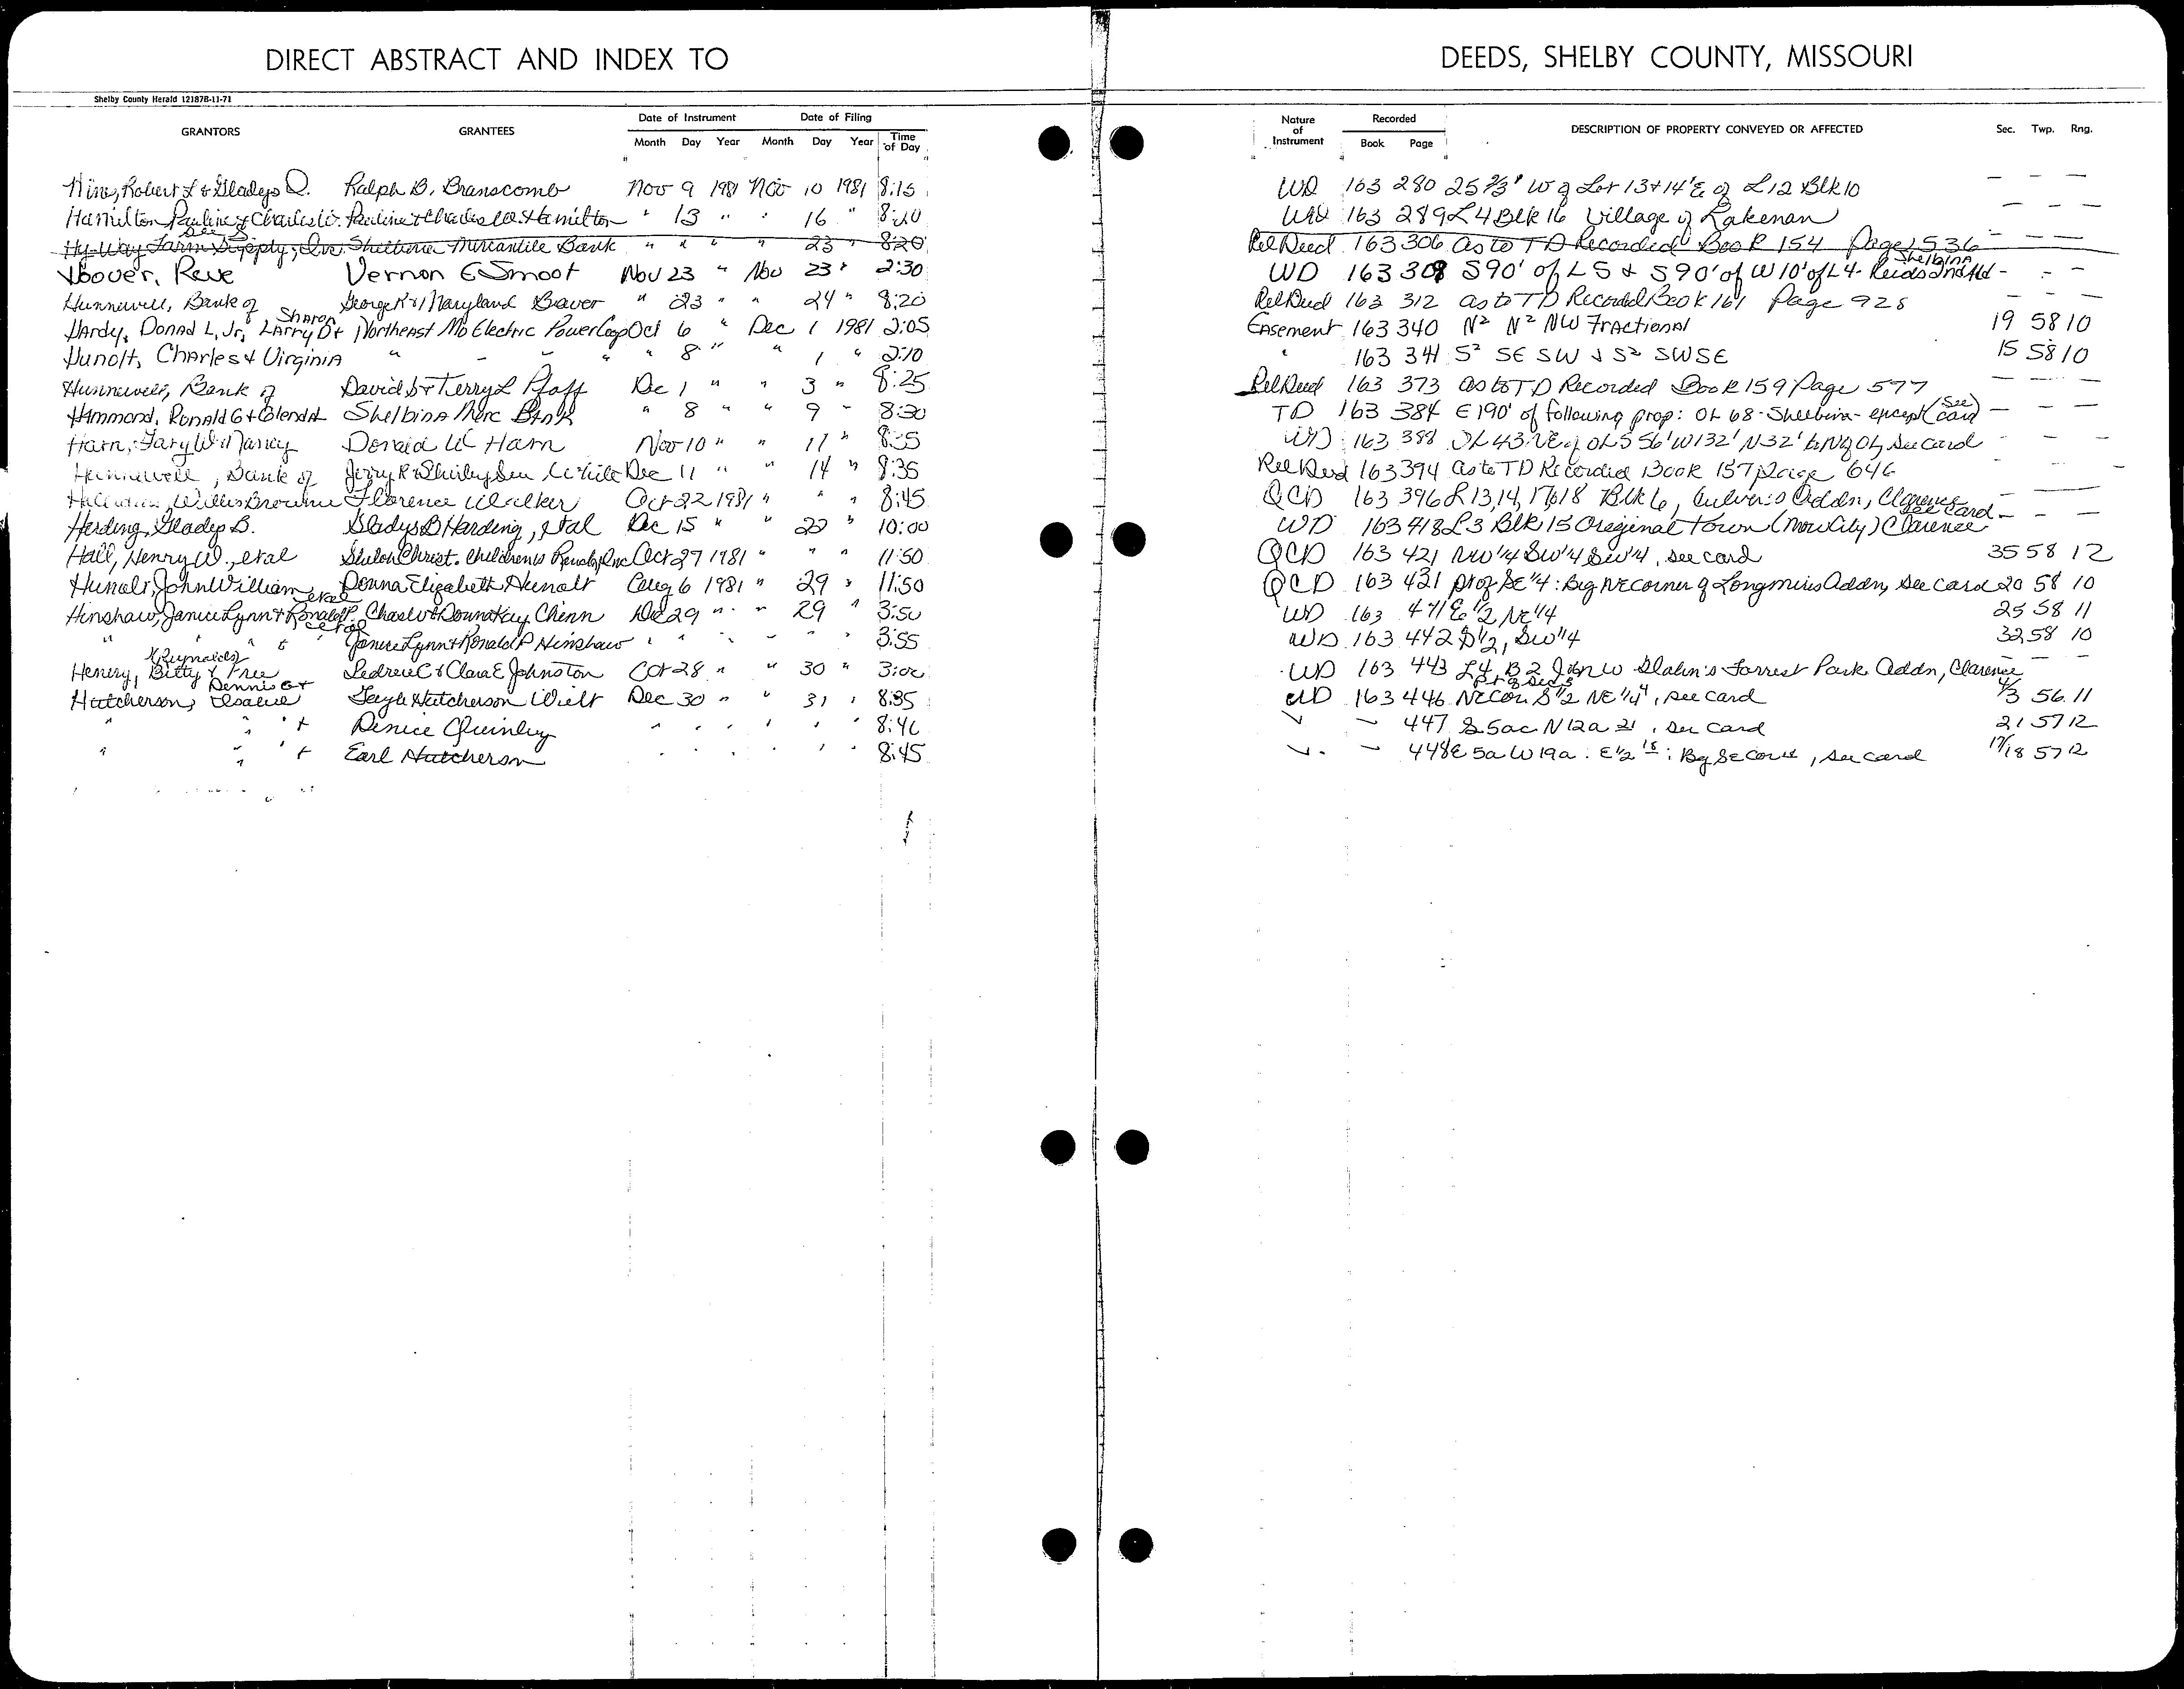 DIRECT ABSTRACT AND INDEX TO DEEDS, SHELBY COUNTY, MISSOURI
Shelby County Herald 12187B-11-71
GRANTORS GRANTEES Date of Instrument Month Day Year Date of Filing Month Day Year Time of Day Nature of Instrument Recorded Book Page DESCRIPTION OF PROPERTY CONVEYED OR AFFECTED Sec. Twp. Rng.
Robert L & Gladys Ralph B. Branscomb Nov 9 1981 Nov 10 1981 8:15 WD 163 280 25 2/3' W of Lot 13 + 14' E of L12 Blk 10 — — —
Hamilton Pauline & Charles W. Pauline & Charles W. Hamilton " 13 " " 16 " WD 163 289 L 4 Blk 16 Village of Lakenan — — —
Hy-Way Farm Supply, Inc. See S Shelbina Mercantile Bank " " " " 23 " 8:20 Rel Deed 163 306 as to TD Recorded Book 154 Page 536 — — —
Hoover, Vernon E Smoot Nov 23 " Nov 23 " 2:30 WD 163 308 S90' of L5 & S90' of W10' of L4- Reids 2nd Ad Shelbina - - -
Hunnewell, Bank of George R & Maryland Beaver " 23 " " 24 " 8:20 Rel Deed 163 312 as to TD Recorded Book 161 Page 928 — — —
Hardy, Donad L, Jr, Larry D + Sharon Northeast Mo Electric Power Coop Oct 6 " Dec 1 1981 2:05 Easement 163 340 N² N² NW Fractional 19 58 10
Hunolt, Charles & Virginia " - - " " 8 " " 1 " 2:10 " 163 341 S² SE SW & S² SWSE 15 58 10
Hunnewell, Bank of David & Terry L Pfaff Dec 1 " " 3 " 8:25 Rel Deed 163 373 as to TD Recorded Book 159 Page 577 — — —
Hammond, Ronald G + Glenda Shelbina Merc Bank " 8 " " 9 - 8:30 TD 163 384 E 190' of following prop: OL 68 - Shelbina - except (See card) — — —
Gary W & Nancy Donald W Nov 10 " " 11 " WD 163 388 see card - — —
Hunnewell, Bank of Jerry R & Shirley Sue White Dec 11 " " 14 " 8:35 Rel Deed 163 394 as to TD Recorded Book 157 page 646 - - -
Willis Browne Florence Walker Oct 22 1981 " " " 8:45 QCD 163 396 L 13, 14, 17 & 18 Blk 6, Addn, Clarence see card - — —
Harding, Gladys B. Gladys B Harding, et al Dec 15 " " 22 " 10:00 WD 163 418 L3 Blk 15 Original Town (Now City) Clarence — — —
Hall, Henry W., et al Shiloh Christ. Children's Ranch, Inc Oct 27 1981 " " " 11:50 QCD 163 421 NW 1/4 SW 1/4 SW 1/4, see card 35 58 12
Hunolt, John William, et al Donna Elizabeth Hunolt Aug 6 1981 " 29 " 11:50 QCD 163 431 pt of SE 1/4: Beg NE corner of Longmires Addn, see card 20 58 10
Hinshaw, Janice Lynn & Ronald P. et al Donna Kay Chinn Dec 29 " " 29 " 3:50 WD 163 441 E 1/2 NE 1/4 25 58 11
" " " " Janice Lynn & Ronald P Hinshaw " " " " " " 3:55 WD 163 442 S 1/2, SW 1/4 32 58 10
Henry, Betty (Reynolds) & Free Ledrew C & Clara E Johnston Oct 28 " " 30 " 3:00 WD 163 443 L4, B 2 John W Forrest Park Addn, Clarence — —
Hutcherson, Dennis G + Gayle Hutcherson Wilt Dec 30 " " 31 " 8:35 WD 163 446 NE Cor S 1/2 NE 1/4, see card 4/3 56 11
" " " + Denice Quinley " " " " " " 8:40 " - 447 S 5ac N 12a 21, see card 21 57 12
" " " + Earl Hutcherson " " " " " " 8:45 " - 448 E 5a W 19a. E 1/2 18: Beg SE Cor, see card 17/18 57 12